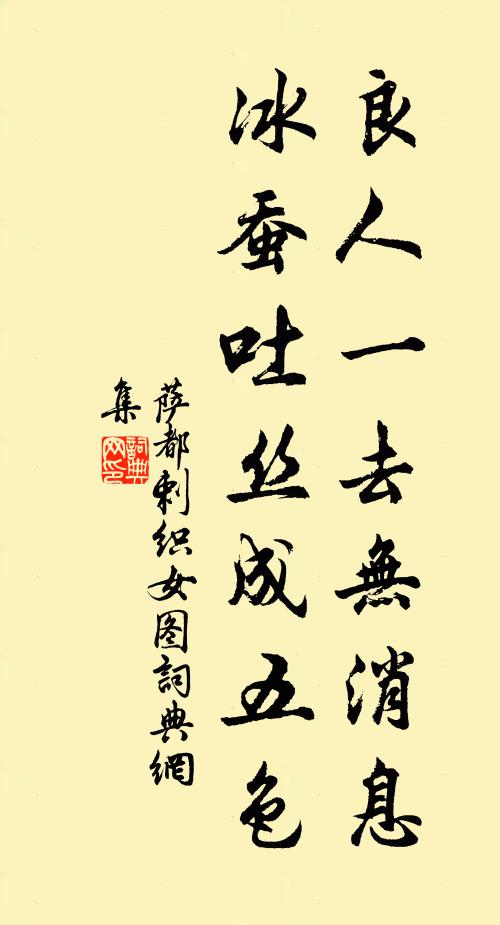 良人一去無消息
冰蚕吐丝成五色
萨都剌织女图詞典網
集
詞典
网印